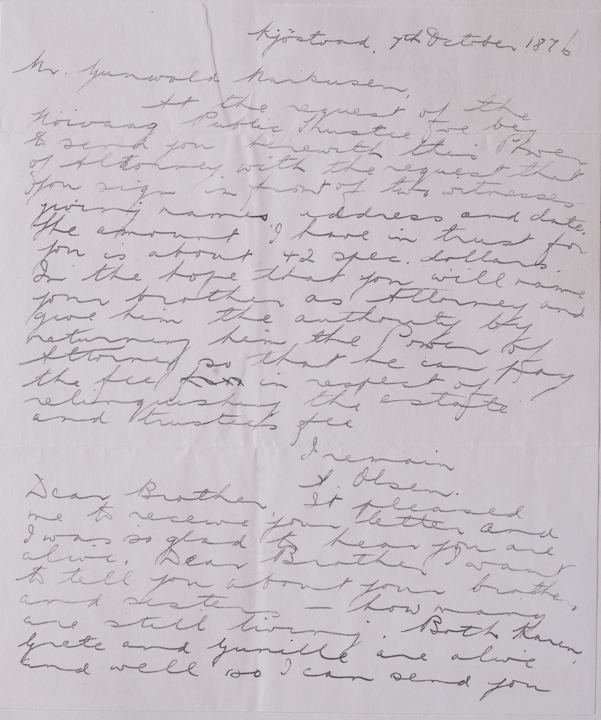 Kjöstvad, 7th October 1876
Mr. Gunwald Markusen,
At the request of the
Public Trustee I've beg
to send you herewith this Power
of Attorney with the request that
you sign in front of two witnesses
giving names, address and date.
The amount I have in trust for
you is about 42 spec. dollars.
In the hope that you will name
your brother as Attorney and
give him the authority by
returning him the Power of
Attorney so that he can pay
the fee in respect of
relinquishing the estate
and trustees fee
I remain
A. Olsen.
Dear Brother, It pleased
me to receive your letter and
I was so glad to hear you are
alive. Dear Brother I want
to tell you about your brothers
and sisters – how many
are still living. Both Karen,
Grete and Gunille are alive
and well so I can send you